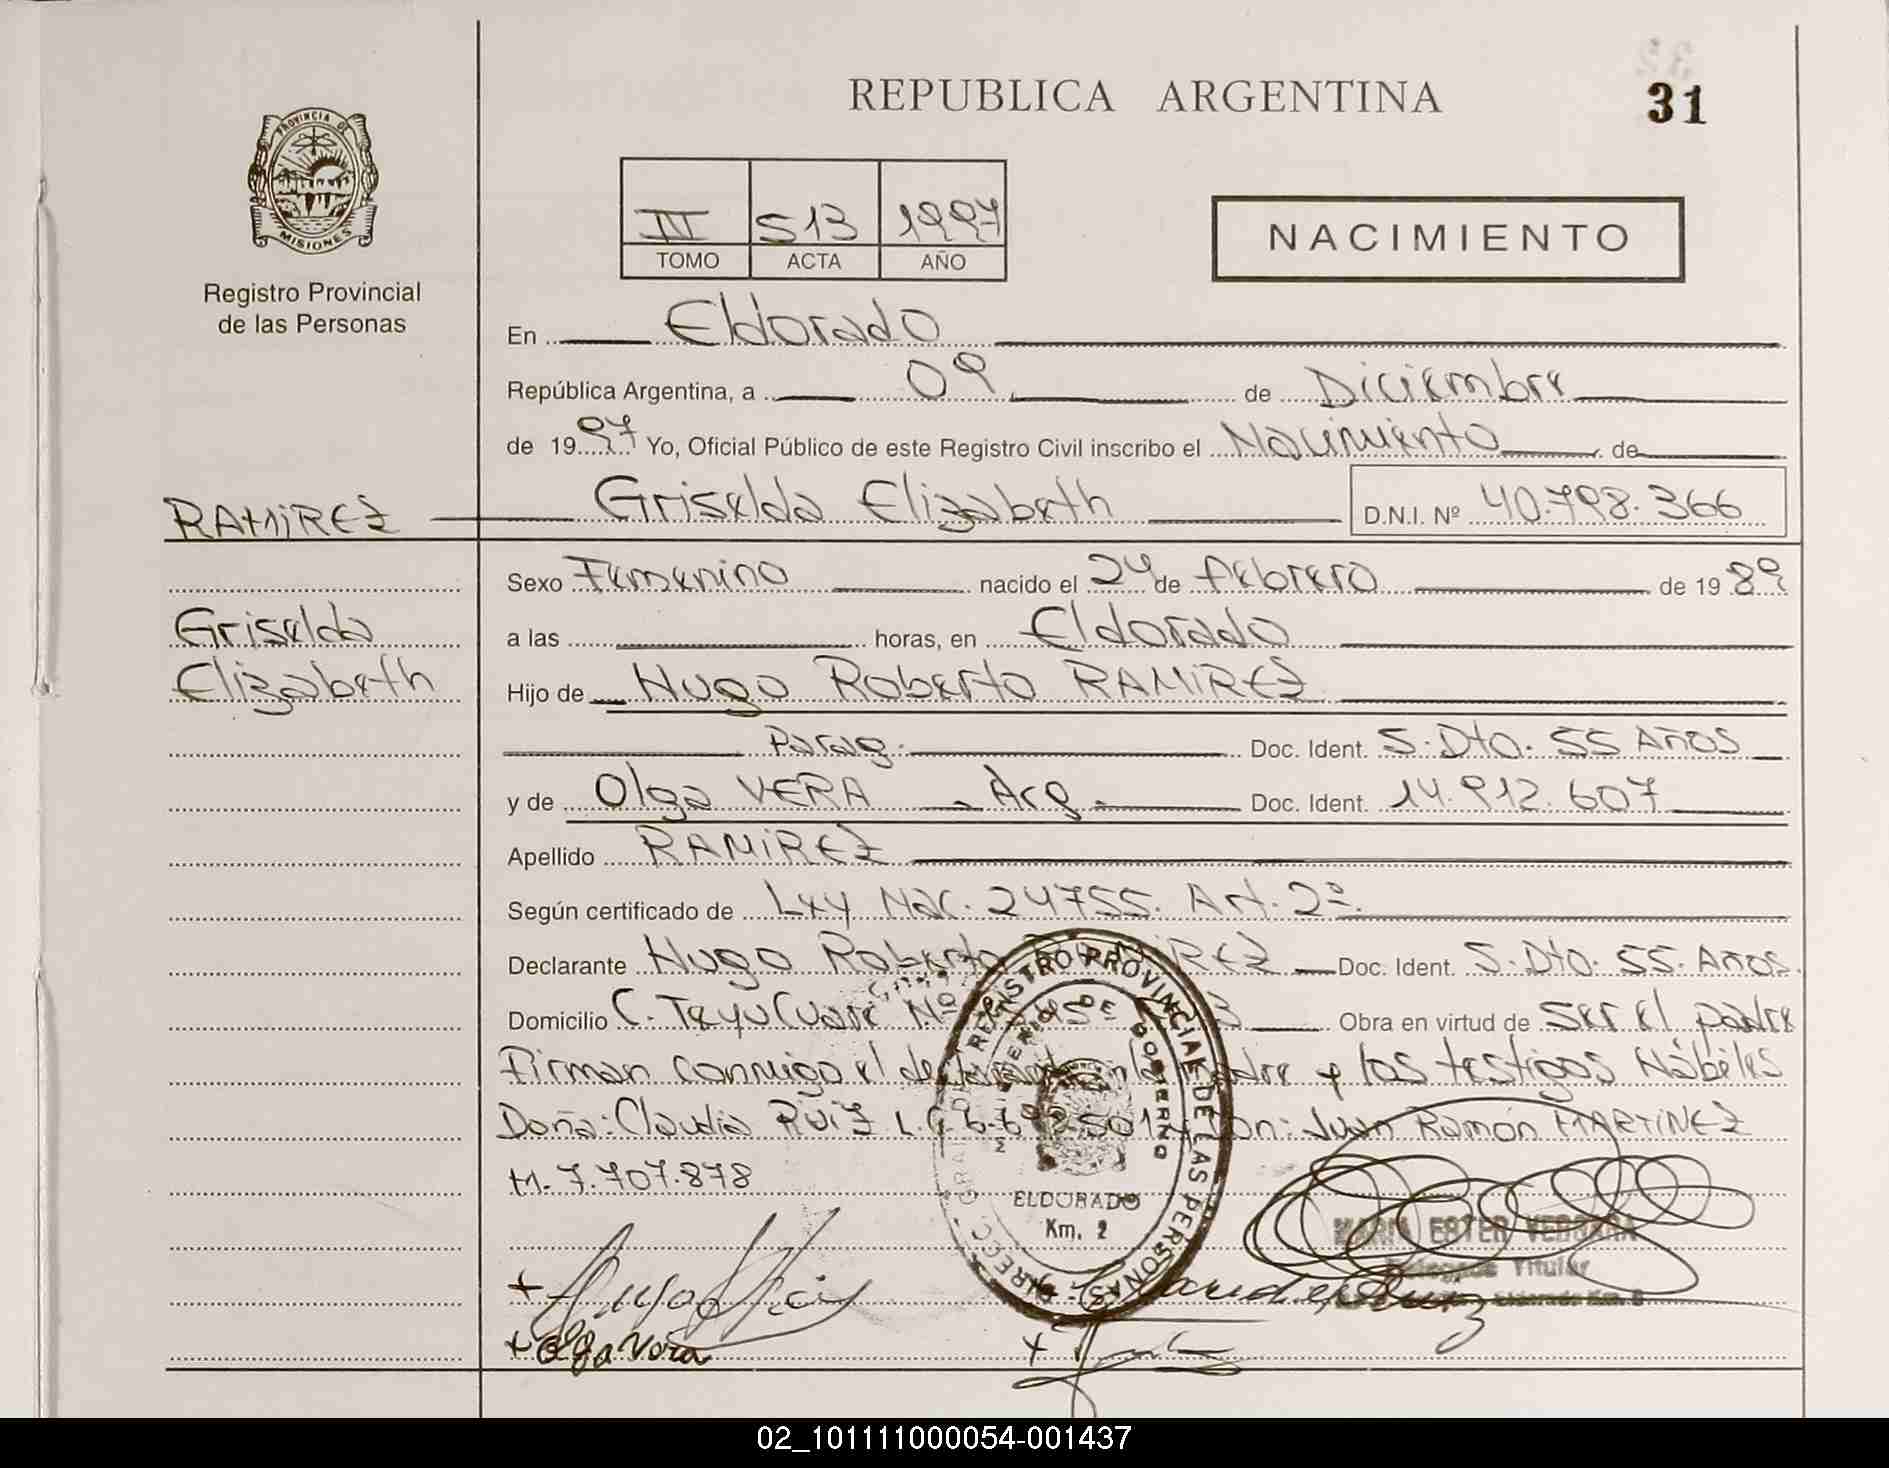 REPUBLICA ARGENTINA
31
PROVINCIA DE
MISIONES
Registro Provincial
de las Personas
III 513 1997
TOMO ACTA AÑO
NACIMIENTO
En Eldorado
República Argentina, a 09 de Diciembre
de 1997 Yo, Oficial Público de este Registro Civil inscribo el Nacimiento de
RAMIREZ Griselda Elizabeth D.N.I. Nº 40.798.366
Sexo Femenino nacido el 24 de febrero de 1989
Griselda a las horas, en Eldorado
Elizabeth Hijo de Hugo Roberto RAMIREZ
Parag. Doc. Ident. S. Dto. 55 Años
y de Olga VERA - Arg - Doc. Ident. 14.912.607
Apellido RAMIREZ
Según certificado de Ley Nac. 24755. Art. 2º.
Declarante Hugo Roberto RAMIREZ Doc. Ident. S. Dto. 55. Años.
Domicilio C. Teyu Cuare Nº Obra en virtud de ser el padre
Firman conmigo el declarante, la madre y los testigos Hábiles
Doña: Claudia RUIZ L.C. Don: Juan Ramón MARTINEZ
M. 7.707.878
REGISTRO PROVINCIAL DE LAS PERSONAS
DE GOBIERNO
ELDORADO
Km. 2
MARIA ESTER VERGARA
Delegada Titular
+ Olga Vera
02_101111000054-001437